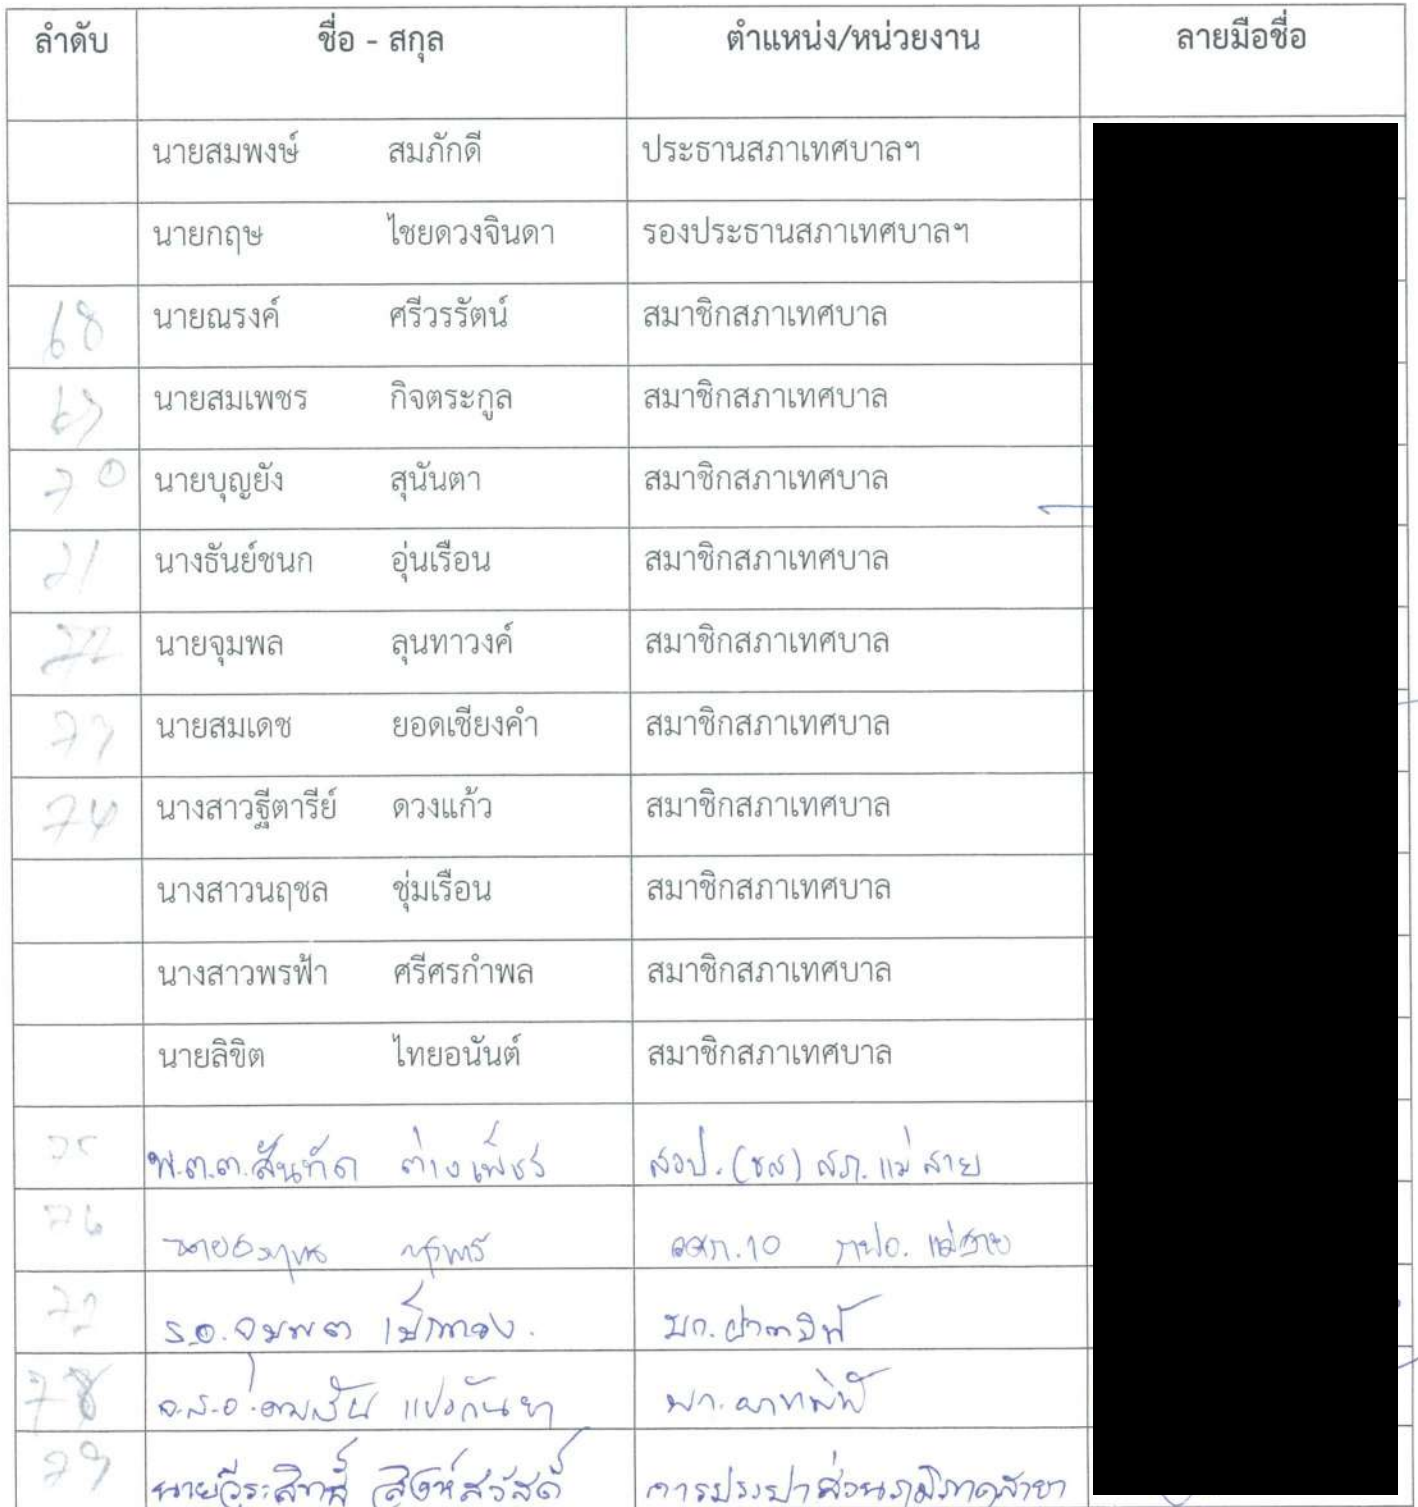 ลำดับ ชื่อ - สกุล ตำแหน่ง/หน่วยงาน ลายมือชื่อ
นายสมพงษ์ สมภักดี ประธานสภาเทศบาลฯ
นายกฤษ ไชยดวงจินดา รองประธานสภาเทศบาลฯ
68 นายณรงค์ ศรีวรรัตน์ สมาชิกสภาเทศบาล
69 นายสมเพชร กิจตระกูล สมาชิกสภาเทศบาล
70 นายบุญยัง สุนันตา สมาชิกสภาเทศบาล
71 นางธันย์ชนก อุ่นเรือน สมาชิกสภาเทศบาล
72 นายจุมพล ลุนทาวงค์ สมาชิกสภาเทศบาล
73 นายสมเดช ยอดเชียงคำ สมาชิกสภาเทศบาล
74 นางสาวฐีตารีย์ ดวงแก้ว สมาชิกสภาเทศบาล
นางสาวนฤชล ชุ่มเรือน สมาชิกสภาเทศบาล
นางสาวพรฟ้า ศรีศรกำพล สมาชิกสภาเทศบาล
นายลิขิต ไทยอนันต์ สมาชิกสภาเทศบาล
75 พ.ต.ต.สันทัด ต่างเพ็ชร สวป.(ชส) สภ.แม่สาย
76 แม่สาย
77 ร.อ.
78 จ.ส.อ.
79 นายวีระสิทธิ์ สิงห์สวัสดิ์ การประปาส่วนภูมิภาคสาขา